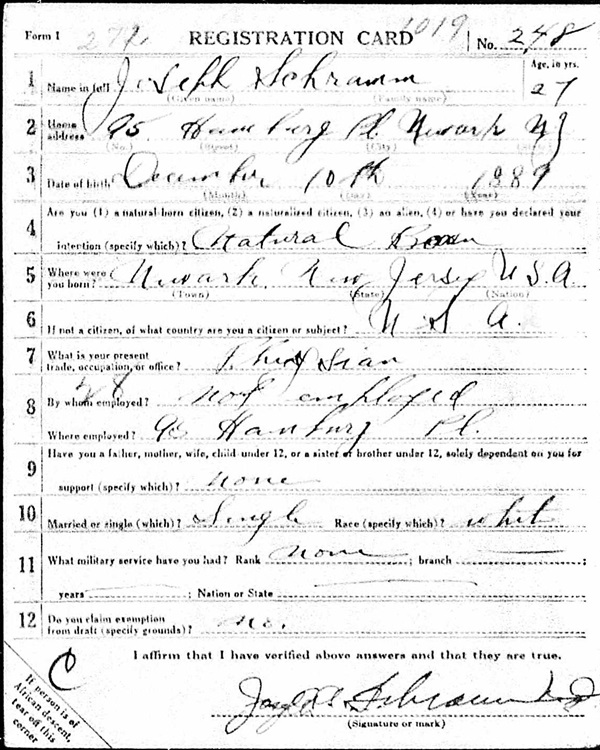 Form 1 REGISTRATION CARD 1019 No. 248
1 Name in full Joseph Schramm Age, in yrs. 27
(Given name) (Family name)
2 Home address 95 Hamburg Pl Newark NJ
(No.) (Street) (City) (State)
3 Date of birth December 10th 1889
(Month) (Day) (Year)
4 Are you (1) a natural-born citizen, (2) a naturalized citizen, (3) an alien, (4) or have you declared your
intention (specify which)? Natural Born
5 Where were you born? Newark New Jersey U.S.A
(Town) (State) (Nation)
6 If not a citizen, of what country are you a citizen or subject? U S A.
7 What is your present trade, occupation, or office? Phiysian
28
8 By whom employed? not employed
Where employed? 95 Hamburg Pl.
9 Have you a father, mother, wife, child under 12, or a sister or brother under 12, solely dependent on you for
support (specify which)? none
10 Married or single (which)? Single Race (specify which)? whit
11 What military service have you had? Rank none ; branch ;
years ; Nation or State
12 Do you claim exemption from draft (specify grounds)? no.
I affirm that I have verified above answers and that they are true.
Joseph Schramm
(Signature or mark)
If person is of
African descent,
tear off this
corner